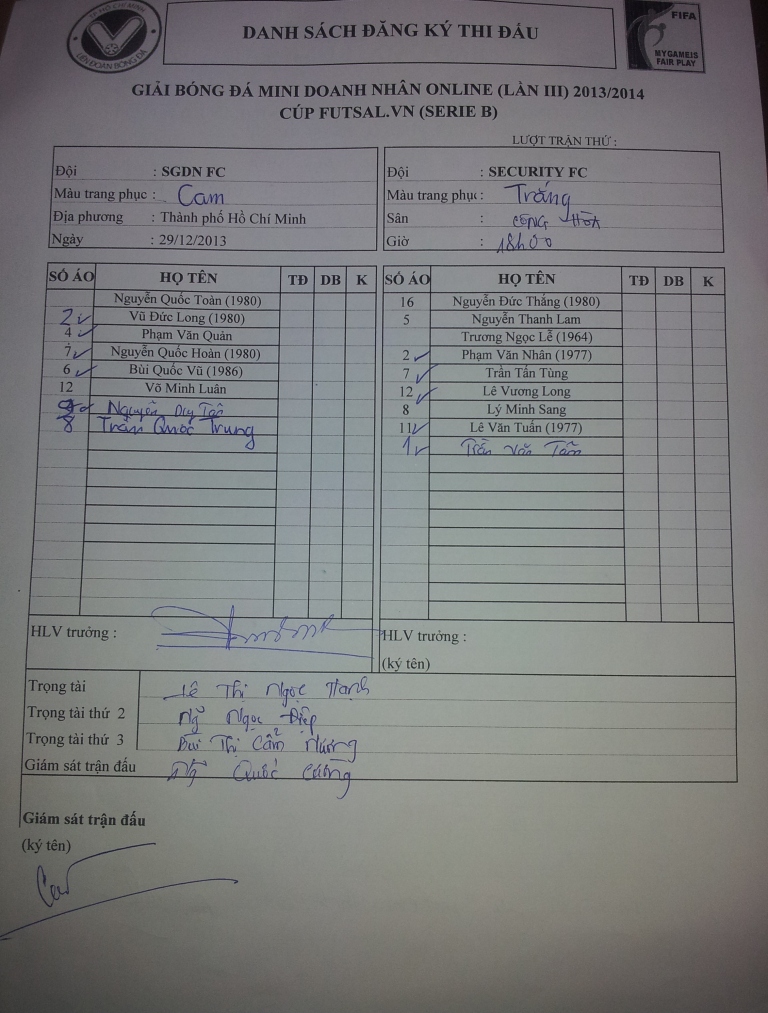 TP.HỒ CHÍ MINH
LIÊN ĐOÀN BÓNG ĐÁ
DANH SÁCH ĐĂNG KÝ THI ĐẤU
FIFA
MY GAME IS
FAIR PLAY
GIẢI BÓNG ĐÁ MINI DOANH NHÂN ONLINE (LẦN III) 2013/2014
CÚP FUTSAL.VN (SERIE B)
LƯỢT TRẬN THỨ :
Đội : SGDN FC
Màu trang phục : Cam
Địa phương : Thành phố Hồ Chí Minh
Ngày : 29/12/2013
Đội : SECURITY FC
Màu trang phục : Trắng
Sân : CỘNG HÒA
Giờ : 18h00
SỐ ÁO HỌ TÊN TĐ DB K
Nguyễn Quốc Toàn (1980)
2 Vũ Đức Long (1980)
4 Phạm Văn Quản
7 Nguyễn Quốc Hoàn (1980)
6 Bùi Quốc Vũ (1986)
12 Võ Minh Luân
Nguyễn Duy Tân
8 Trần Quốc Trung
SỐ ÁO HỌ TÊN TĐ DB K
16 Nguyễn Đức Thắng (1980)
5 Nguyễn Thanh Lam
Trương Ngọc Lễ (1964)
2 Phạm Văn Nhân (1977)
7 Trần Tấn Tùng
12 Lê Vương Long
8 Lý Minh Sang
11 Lê Văn Tuấn (1977)
1 Trần Văn Tâm
HLV trưởng :
HLV trưởng :
(ký tên)
Trọng tài Lê Thị Ngọc Hạnh
Trọng tài thứ 2 Ng̃ Ngọc Điệp
Trọng tài thứ 3 Bùi Thị Cẩm Hương
Giám sát trận đấu Ng̃ Quốc Cường
Giám sát trận đấu
(ký tên)